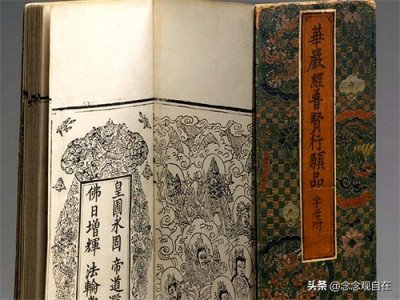 華嚴經普賢行願品
皇圖永固 帝道
佛日增輝 法輪
头条 @念念观自在